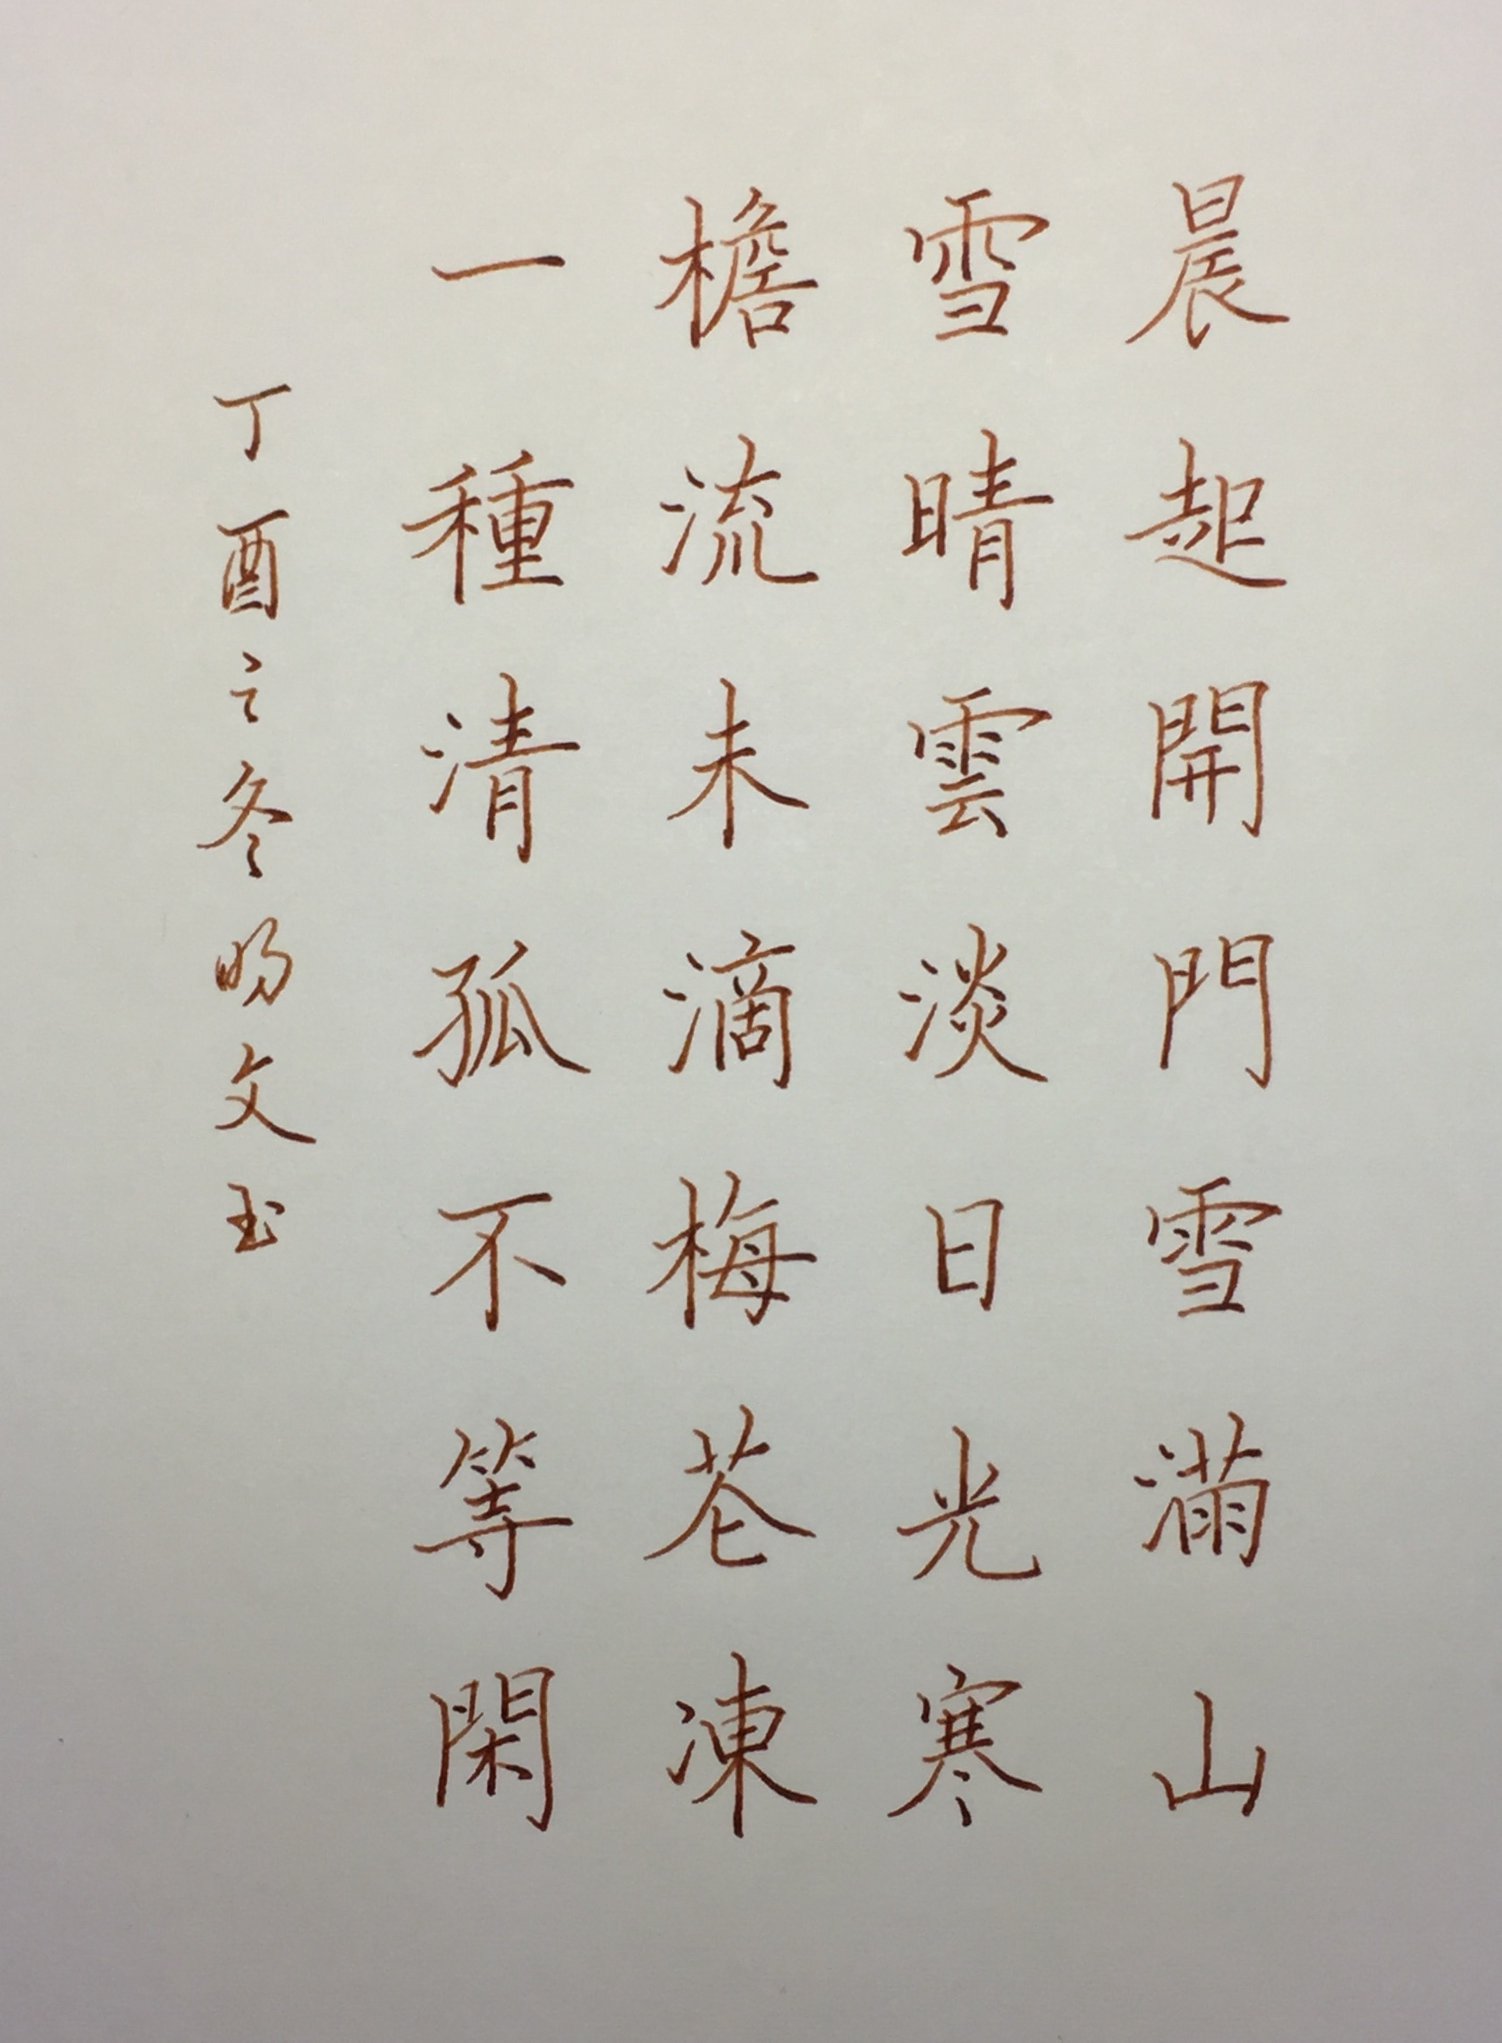 晨起開門雪滿山
雪晴雲淡日光寒
檐流未滴梅花凍
一種清孤不等閑
丁酉之冬昒文玉